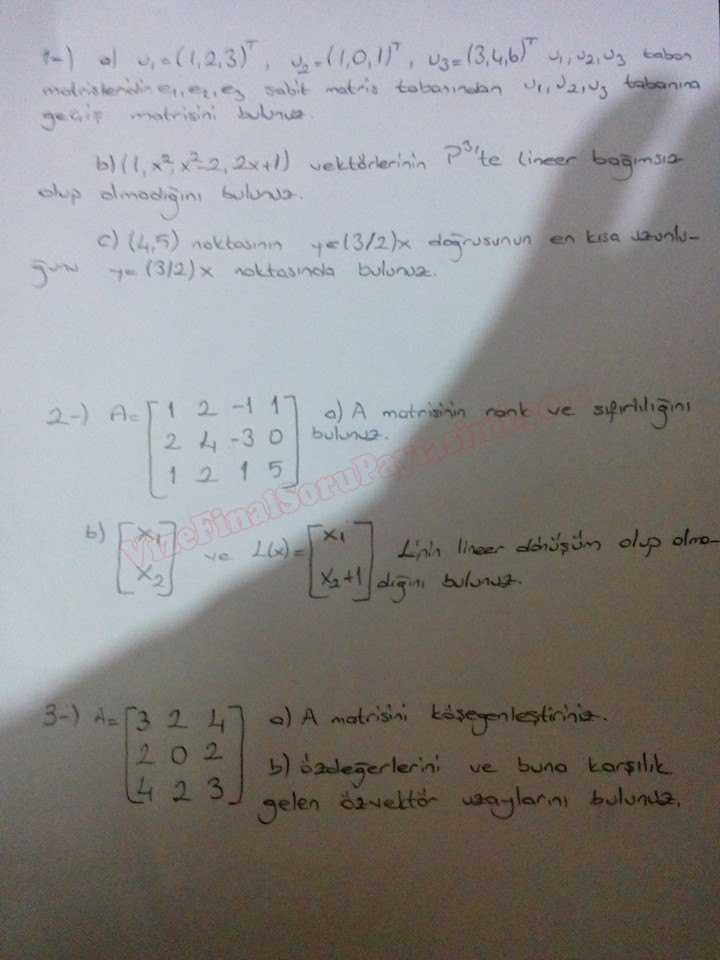 1-) a) u₁=(1,2,3)ᵀ, u₂=(1,0,1)ᵀ, u₃=(3,4,6)ᵀ u₁,u₂,u₃ taban
e₁,e₂,e₃ sabit matris tabanından u₁,u₂,u₃ tabanına
geçiş matrisini bulunuz.
b) (1, x², x²-2, 2x+1) vektörlerinin P³'te lineer bağımsız
olup olmadığını bulunuz.
c) (4,5) noktasının y=(3/2)x doğrusunun en kısa uzunlu-
ğunu y=(3/2)x noktasında bulunuz.
2-) A= [1 2 -1 1] a) A matrisinin rank ve sıfırlılığını
[2 4 -3 0] bulunuz.
[1 2 1 5]
VizeFinalSoruPaylasimi.com
b) [x₁] ve L(x)= [x₁] L'nin lineer dönüşüm olup olma-
[x₂] [x₂+1] dığını bulunuz.
3-) A= [3 2 4] a) A matrisini köşegenleştiriniz.
[2 0 2] b) özdeğerlerini ve buna karşılık
[4 2 3] gelen özvektör uzaylarını bulunuz.